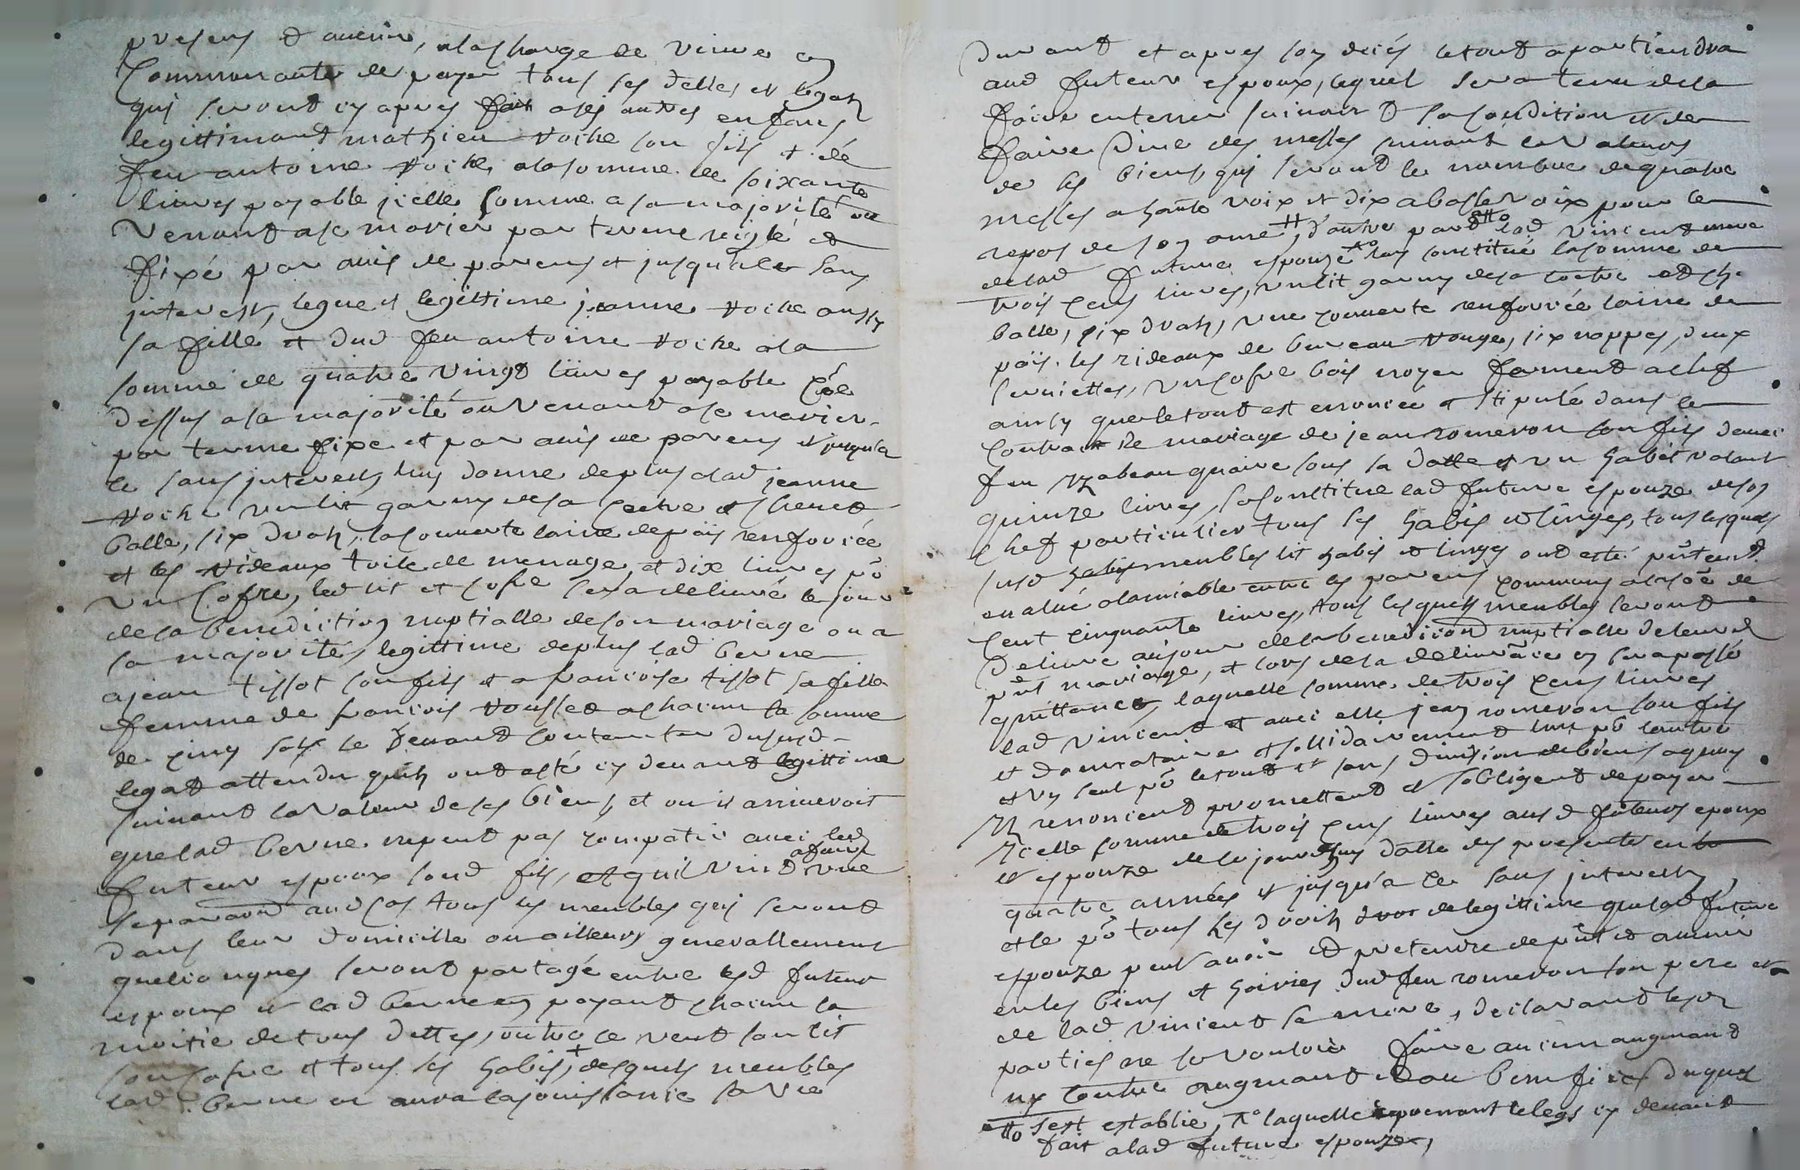 presens et avenir, alacharge de vivre en
Communauté de payer tous ses debtes et legats
qui seront cy apres fait a ses autres enfans
legittimant mathieu voihe son fils et de
feu antoine voihe alasomme de soixante
livres payable jcelle somme a sa majorité ou
Venant ase marier par terme reiglé et
fixé par avis de parens et jusqualce sans
interest, legue et legittime jeanne voihe aussy
sa fille et dud feu antoine voihe ala
somme de quatre vingt livres payable
dessus asa majorité ou Venant ase marier
par terme fixe et par avis de parens et jusqua
ce sans jnterest, luy donne deplus alad jeanne
voihe un lit garny desa
balle, six drah, la couverte laine depaïs renforcée
et les rideaux toile de menage, et dix livres po
un Cofre, led lit et cofre sera delivré le jour
de la benediction nuptialle de son mariage ou a
sa majorité, legittime deplus lad benne
ajean tissot son fils et a francoise tissot sa fille
femme de francois rousset achacun la somme
de cinq sols se devant contenter dususd
legat attendu quih ont esté cy devant legittime
suivant la valeur de ses biens, et ou il arriveroit
que lad benne nepeut pas compatir avec led
futeur espoux sond fils, et quil vint afaire une
separaon aud cas tous les meubles qui seront
dans leur domicille ou ailleurs generallement
quelconques seront partagé entre lesd futeur
espoux et lad benne en payant chacun la
moitie detous dettes, outre ce veut son lit
son cofre et tous ses habis + desquels meubles
lad benne en aura lajouissance sa vie
Durant et apres son decés letout apartiendra
aud futeur espoux, lequel sera tenu dela
faire enterrer suivant sa condition et de
faire dire des messes suivant la valeur
de ses biens, qui seront le nombre dequatre
messes ahaute voix et dix abasse voix pour le
repos de son ame #, d'autre part lad vincent mere
delad future espouze luy constitué lasomme de
trois cens livres, un lit garny desa
balle, six drah, une couverte renforcée laine de
païs, les rideaux de bureau rouge, six nappes, deux
serviettes, un cofre bois noyer fermant aclef
ainsy que le tout est enoncee et stipulé dans le
Contract de mariage de jean romeron son fils davec
feu yzabeau quaire sous sa datte et un habit valant
quinze livres, seconstitue lad future espouze deson
chef particulier tous ses habis et linges, tous lesquels
susd meubles lit habis et linges ont esté
evalué alamiable entre les parens communs alasoe de
Cent cinquante livres, tous lesquels meubles seront
Delivré aujour dela benediction nuptialle deleurd
pnt mariage, et lors desa delivrance en sera passé
quittance, laquelle somme de trois cens livres
lad vincent et avec elle jean romeron son fils
et donnataire et sollidairement
et un seul po letout et sans division debiens aquoy
ils renoncent promettent et sobligent depayer
jcelle somme de trois cens livres aus d futeurs epoux
et espouze de ce jourdhuy datte des presente en
quatre années et jusqua ce sans jnterest,
et ce po tous les droih de legittime que lad future
espouze peut avoir et pretendre depnt et avenir
en les biens et hoiries dud feu romeron son pere et
de lad vincent sa mere, declarant lesd
parties ne se vouloir faire aucun augmant
ny contre augmant
#o sest establie, laquelle aprouvant le legs cy devant
fait alad future espouze,